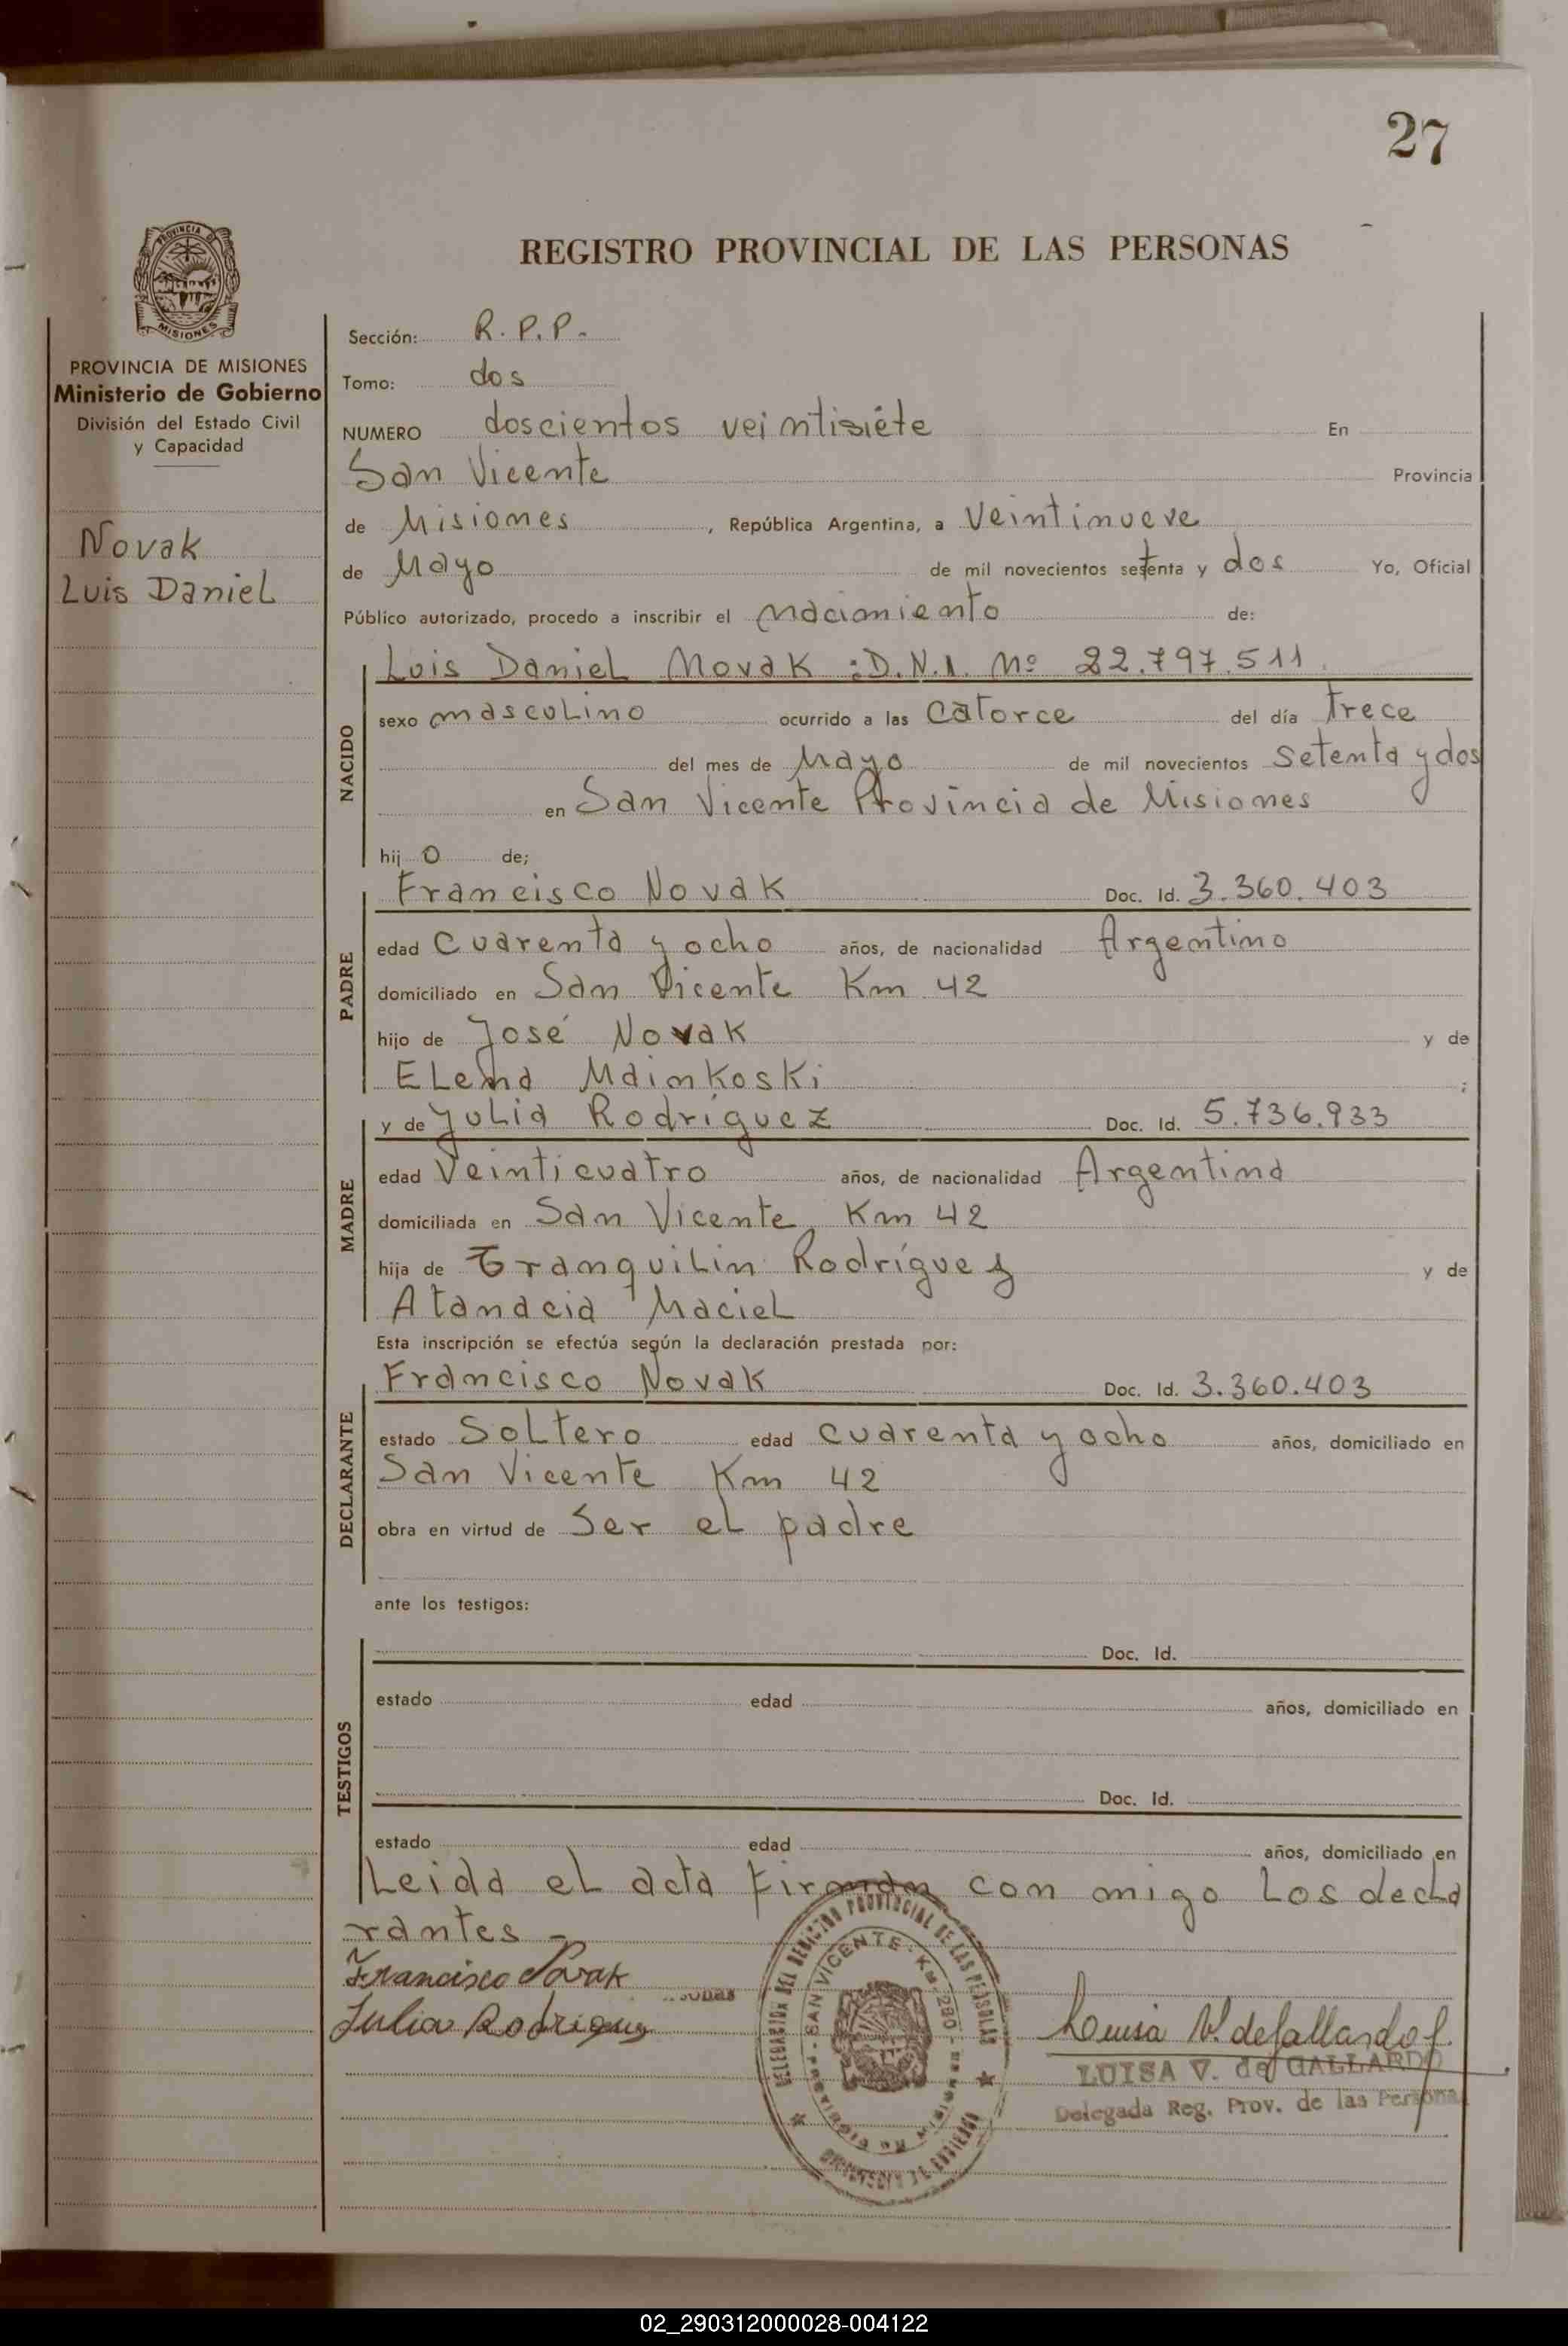 27
REGISTRO PROVINCIAL DE LAS PERSONAS
PROVINCIA DE
MISIONES
PROVINCIA DE MISIONES
Ministerio de Gobierno
División del Estado Civil
y Capacidad
Novak
Luis Daniel
Sección: R.P.P.
Tomo: dos
NUMERO doscientos veintisiéte En
San Vicente Provincia
de Misiones, República Argentina, a Veintinueve
de Mayo de mil novecientos setenta y dos Yo, Oficial
Público autorizado, procedo a inscribir el nacimiento de:
NACIDO
Luis Daniel Novak :D.N.I. Nº 22.797.511
sexo masculino ocurrido a las Catorce del día trece
del mes de Mayo de mil novecientos setenta y dos
en San Vicente Provincia de Misiones
hijo de;
PADRE
Francisco Novak Doc. Id. 3.360.403
edad Cuarenta y ocho años, de nacionalidad Argentino
domiciliado en San Vicente Km 42
hijo de José Novak y de
Elena Mainkoski ;
MADRE
y de Julia Rodríguez Doc. Id. 5.736.933
edad Veinticuatro años, de nacionalidad Argentina
domiciliada en San Vicente, Km 42
hija de Tranquilin Rodríguez y de
Atanacia Maciel
Esta inscripción se efectúa según la declaración prestada por:
DECLARANTE
Francisco Novak Doc. Id. 3.360.403
estado Soltero edad cuarenta y ocho años, domiciliado en
San Vicente Km 42
obra en virtud de Ser el padre
ante los testigos:
TESTIGOS
Doc. Id.
estado edad años, domiciliado en
Doc. Id.
estado edad años, domiciliado en
Leida el acta firman con migo Los decla
rantes -
Francisco Novak
Julia Rodriguez
DELEGACION DEL REGISTRO PROVINCIAL DE LAS PERSONAS
SAN VICENTE - Km. 280
Luisa V. de Gallardo
LUISA V. de GALLARDO
Delegada Reg. Prov. de las Persona
02_290312000028-004122